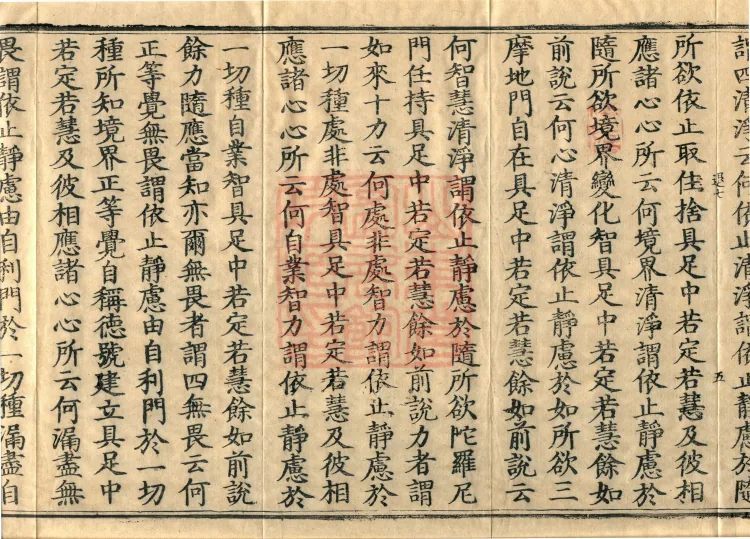 謂四清淨云何依止清淨謂依止靜慮於隨
遐七
五
所欲依止取住捨具足中若定若慧及彼相
應諸心心所云何境界清淨謂依止靜慮於
隨所欲境界變化智具足中若定若慧餘如
前說云何心清淨謂依止靜慮於如所欲三
摩地門自在具足中若定若慧餘如前說云
何智慧清淨謂依止靜慮於隨所欲陀羅尼
門任持具足中若定若慧餘如前說力者謂
如來十力云何處非處智力謂依止靜慮於
一切種處非處智具足中若定若慧及彼相
應諸心心所云何自業智力謂依止靜慮於
一切種自業智具足中若定若慧餘如前說
餘力隨應當知亦爾無畏者謂四無畏云何
正等覺無畏謂依止靜慮由自利門於一切
種所知境界正等覺自稱德號建立具足中
若定若慧及彼相應諸心心所云何漏盡無
畏謂依止靜慮由自利門於一切種漏盡自